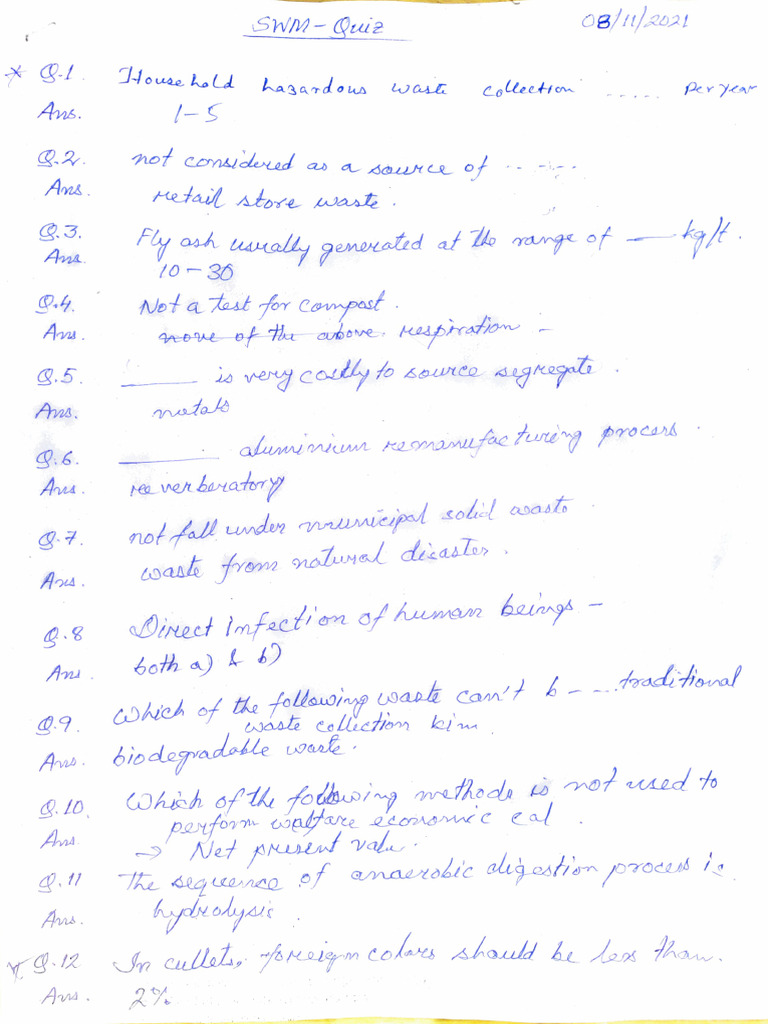 SWM-Quiz 08/11/2021
* Q.1. Household hazardous waste collection ..... per year
Ans. 1-5
Q.2. not considered as a source of ......
Ans. retail store waste.
Q.3. Fly ash usually generated at the range of ___ kg/t.
Ans. 10-30
Q.4. Not a test for compost.
Ans. none of the above. respiration -
Q.5 ______ is very costly to source segregate.
Ans. metals
Q.6. ______ aluminium remanufacturing process.
Ans. reverberatory
Q.7. not fall under municipal solid waste
Ans. waste from natural dicaster.
Q.8 Direct infection of human beings -
Ans. both a) & b)
Q.9 Which of the following waste can't b - ... traditional
waste collection kim.
Ans. biodegradable waste.
Q.10. Which of the following methods is not used to
perform walfare economic cal.
Ans → Net present valu.
Q.11 The sequence of anaerobic digestion process is
Ans. hydrolysis.
* Q.12 In cullets, foreign colors should be less than.
Ans. 2%